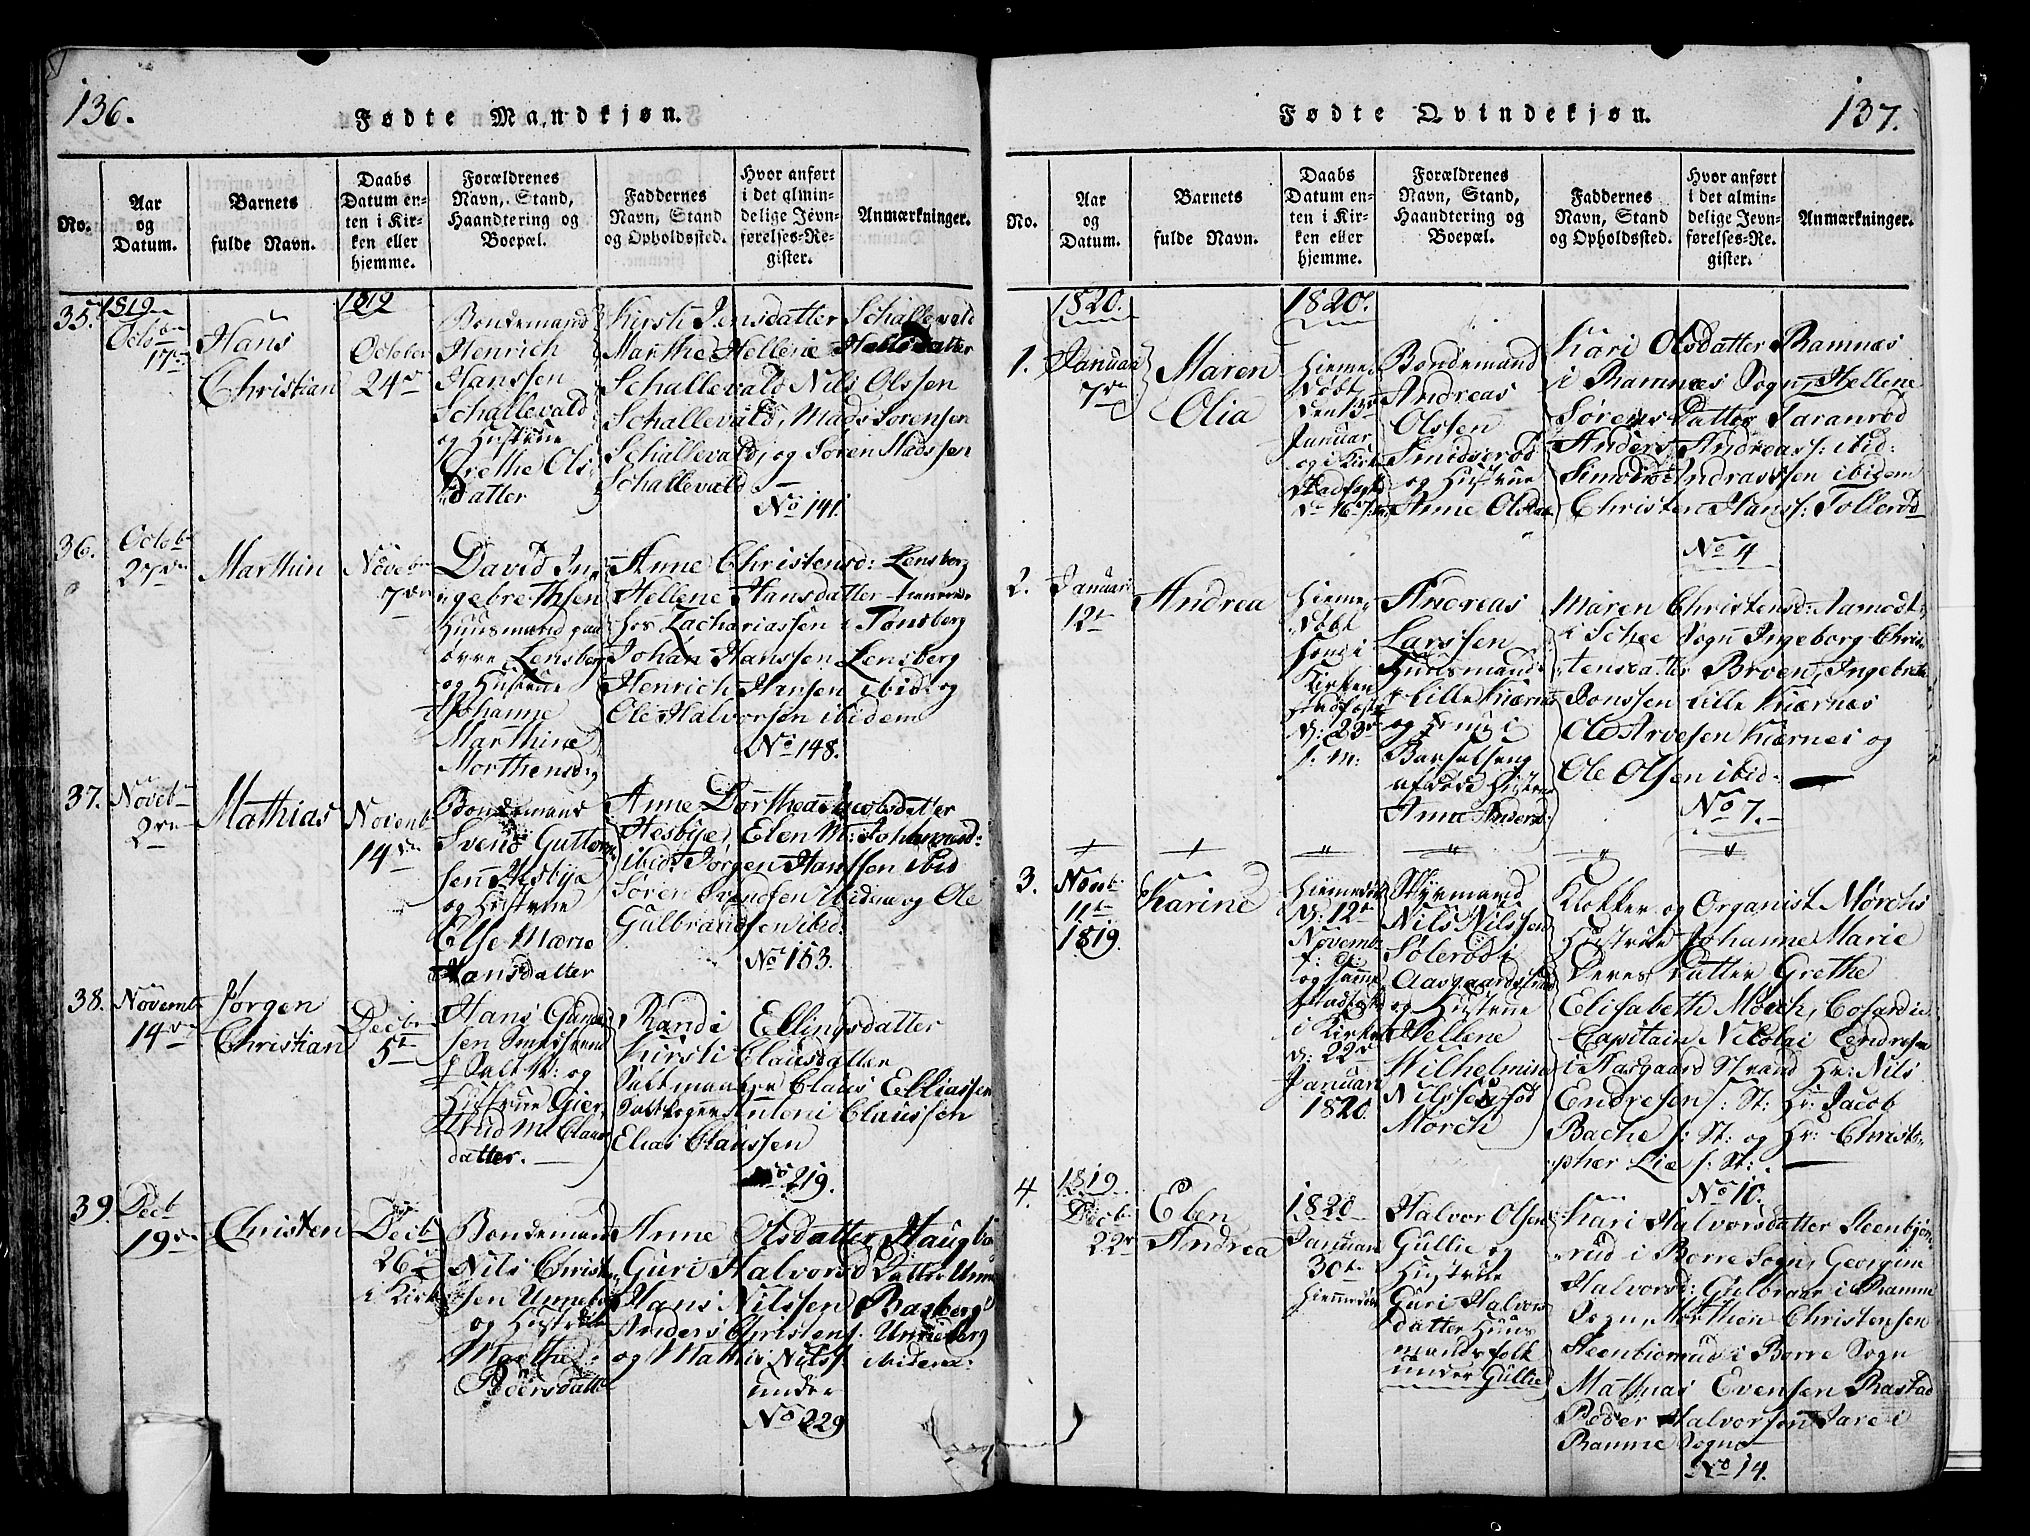 136.
Fødte Mandkjøn.
No.
Aar
og
Datum.
Barnets
fulde Navn.
Daabs
Datum en-
ten i Kir-
ken eller
hjemme.
Forældrenes
Navn, Stand,
Haandtering og
Boepæl.
Faddernes
Navn, Stand
og Opholdssted.
Hvor anført
i det almin-
delige Jevn-
førelses-Re-
gister.
Anmærkninger.
35.
1819
Octobr
17de
Hans
Christian
1819
October
24de
Bondemand
Henrich
Hanssen
Schallevald
og Hustrue
Grethe Ols
Datter
Kirsti Jensdatter Schallevald
Marthe Hellene
Schallevald Nils Olssen
Schallevald, Mads Sørensen
Schallevald, og Søren Madssen
Schallevald
No 141.
36.
Octobr
27de
Marthin
Novebr
7de
David In-
gebrethsen
Huusmand paa
øvre Lensberg
og Hustrue
Johanne
Marthine
Morthensd:
Anne Christensd: Lensberg
Hellene Hansdatter tienende
hos Zachariassen i Tønsberg
Johan Hanssen Lensberg
Henrich Hansen ibid: og
Ole Halvorsen ibidem
No 148.
37.
Novebr
2den
Mathias
Novembr
14de
Bondemand
Svend Guttorm
sen Hesbye
og Hustrue
Else Marie
Hansdatter
Anne Dorthea Jacobsdatter
Hesbye, Elen M: Johannesd:
ibid: Jørgen Hanssen ibid
Søren Svendsen ibidem og Ole
Gulbrandsen ibid:
No 153.
38.
Novembr
14de
Jørgen
Christian
Decbr
5te
Hans Gunde
sen
Salt V: og
Hustrue Gier
trud M: Claus
datter.
Randi Ellingsdatter
Kirsti Clausdatter
Claus Elliassen
Antoni Claussen
Elias Claussen
No 219.
39.
Decb
19de
Christen
Decb
26de
i Kirk
Bondemand
Nils Christen
sen Unneberg
og Hustrue
Marthe
Pedersdatter
Anne Olsdatter Haugberg
Guri Halvorsd Datter Unne
Hans Nilssen Basberg
Anders Christens: Unneberg
og Mathis Nilss: ibidem
under
No 229
137.
Fødte Qvindekjøn.
No.
Aar
og
Datum.
Barnets
fulde Navn.
Daabs
Datum en-
ten i Kir-
ken eller
hjemme.
Forældrenes
Navn, Stand,
Haandtering og
Boepæl.
Faddernes
Navn, Stand
og Opholdssted.
Hvor anført
i det almin-
delige Jevn-
førelses-Re-
gister.
Anmærkninger.
1820.
1.
Januar
7de
Maren
Olia
1820.
Hieme
Døbt
den 13de
Januar
og i Kirk
Stadfest
D: 16 s: m:
Bondemand
Andreas
Olsen
Smidsrød
og Hustrue
Anne Olsdatter
Kari Olsdatter Ramnæs
i Ramnæs Sogn, Hellene
Sørens Datter Taranrød
Anders Andreass: ibid:
Simon Andrassen ibidem
Christen Hans: Tollerød
No 4
2.
Januari
12te
Andrea
Hieme
Døbt
i
Kirken
stadfestet
D: 23de
s: m:
Andreas
Larssen
Huusmand
Lille Kiærnes
og i
Barselseng
afdøde Hustrue
Anne Anders
Maren Christensd: Aamodt
i Schee Sogn Ingeborg Chris
tensdatter Broen, Ingebreth
Jonssen Lille Kiærnæs
Ole Arvesen Kiærnes og
Ole Olsen ibid.
No 7.
3.
Novbr
11te
1819.
Karine
Hiemedøbt
D: 12te
Novembr
f: A:
og samme
stadfestet
i Kirken
D: 22de
Januari
1820.
Styrmand
Nils Nilssen
Sølerød i
Aasgaardstrand
og Hustrue
Hellene
Wilhelmine
Nilssen fød
Mørch
Klokker og Organist Mørchs
Hustrue Johanne Marie
Deres Datter Grethe
Elisabeth Mørch, Cofardie
Capitain Nicolai Endresen
i Aasgaard Strand Hr: Nils
Endresen s: St: Hr: Jacob
Bache s: St: og Hr: Christo-
pher Lie s: St:
No 10.
4.
1819
Decbr
22de
Elen
Andrea
1820
Januari
30te
Hiemedøbt
Halvor Olsen
Gullie og
Hustrue
Guri Halvors
datter Huus
mands folk
under Gullie
Kari Halvorsdatter Steenbjøn
rud i Borre Sogn, Georgine
Halvorsd: Gulbraar i Ramnes
Sogn Morthen Christensen
Steenbiønrud i Borre Sogn
Mathias Evensen Rastad
Peder Halvorsen Jare i
Ramne Sogn
No 14.